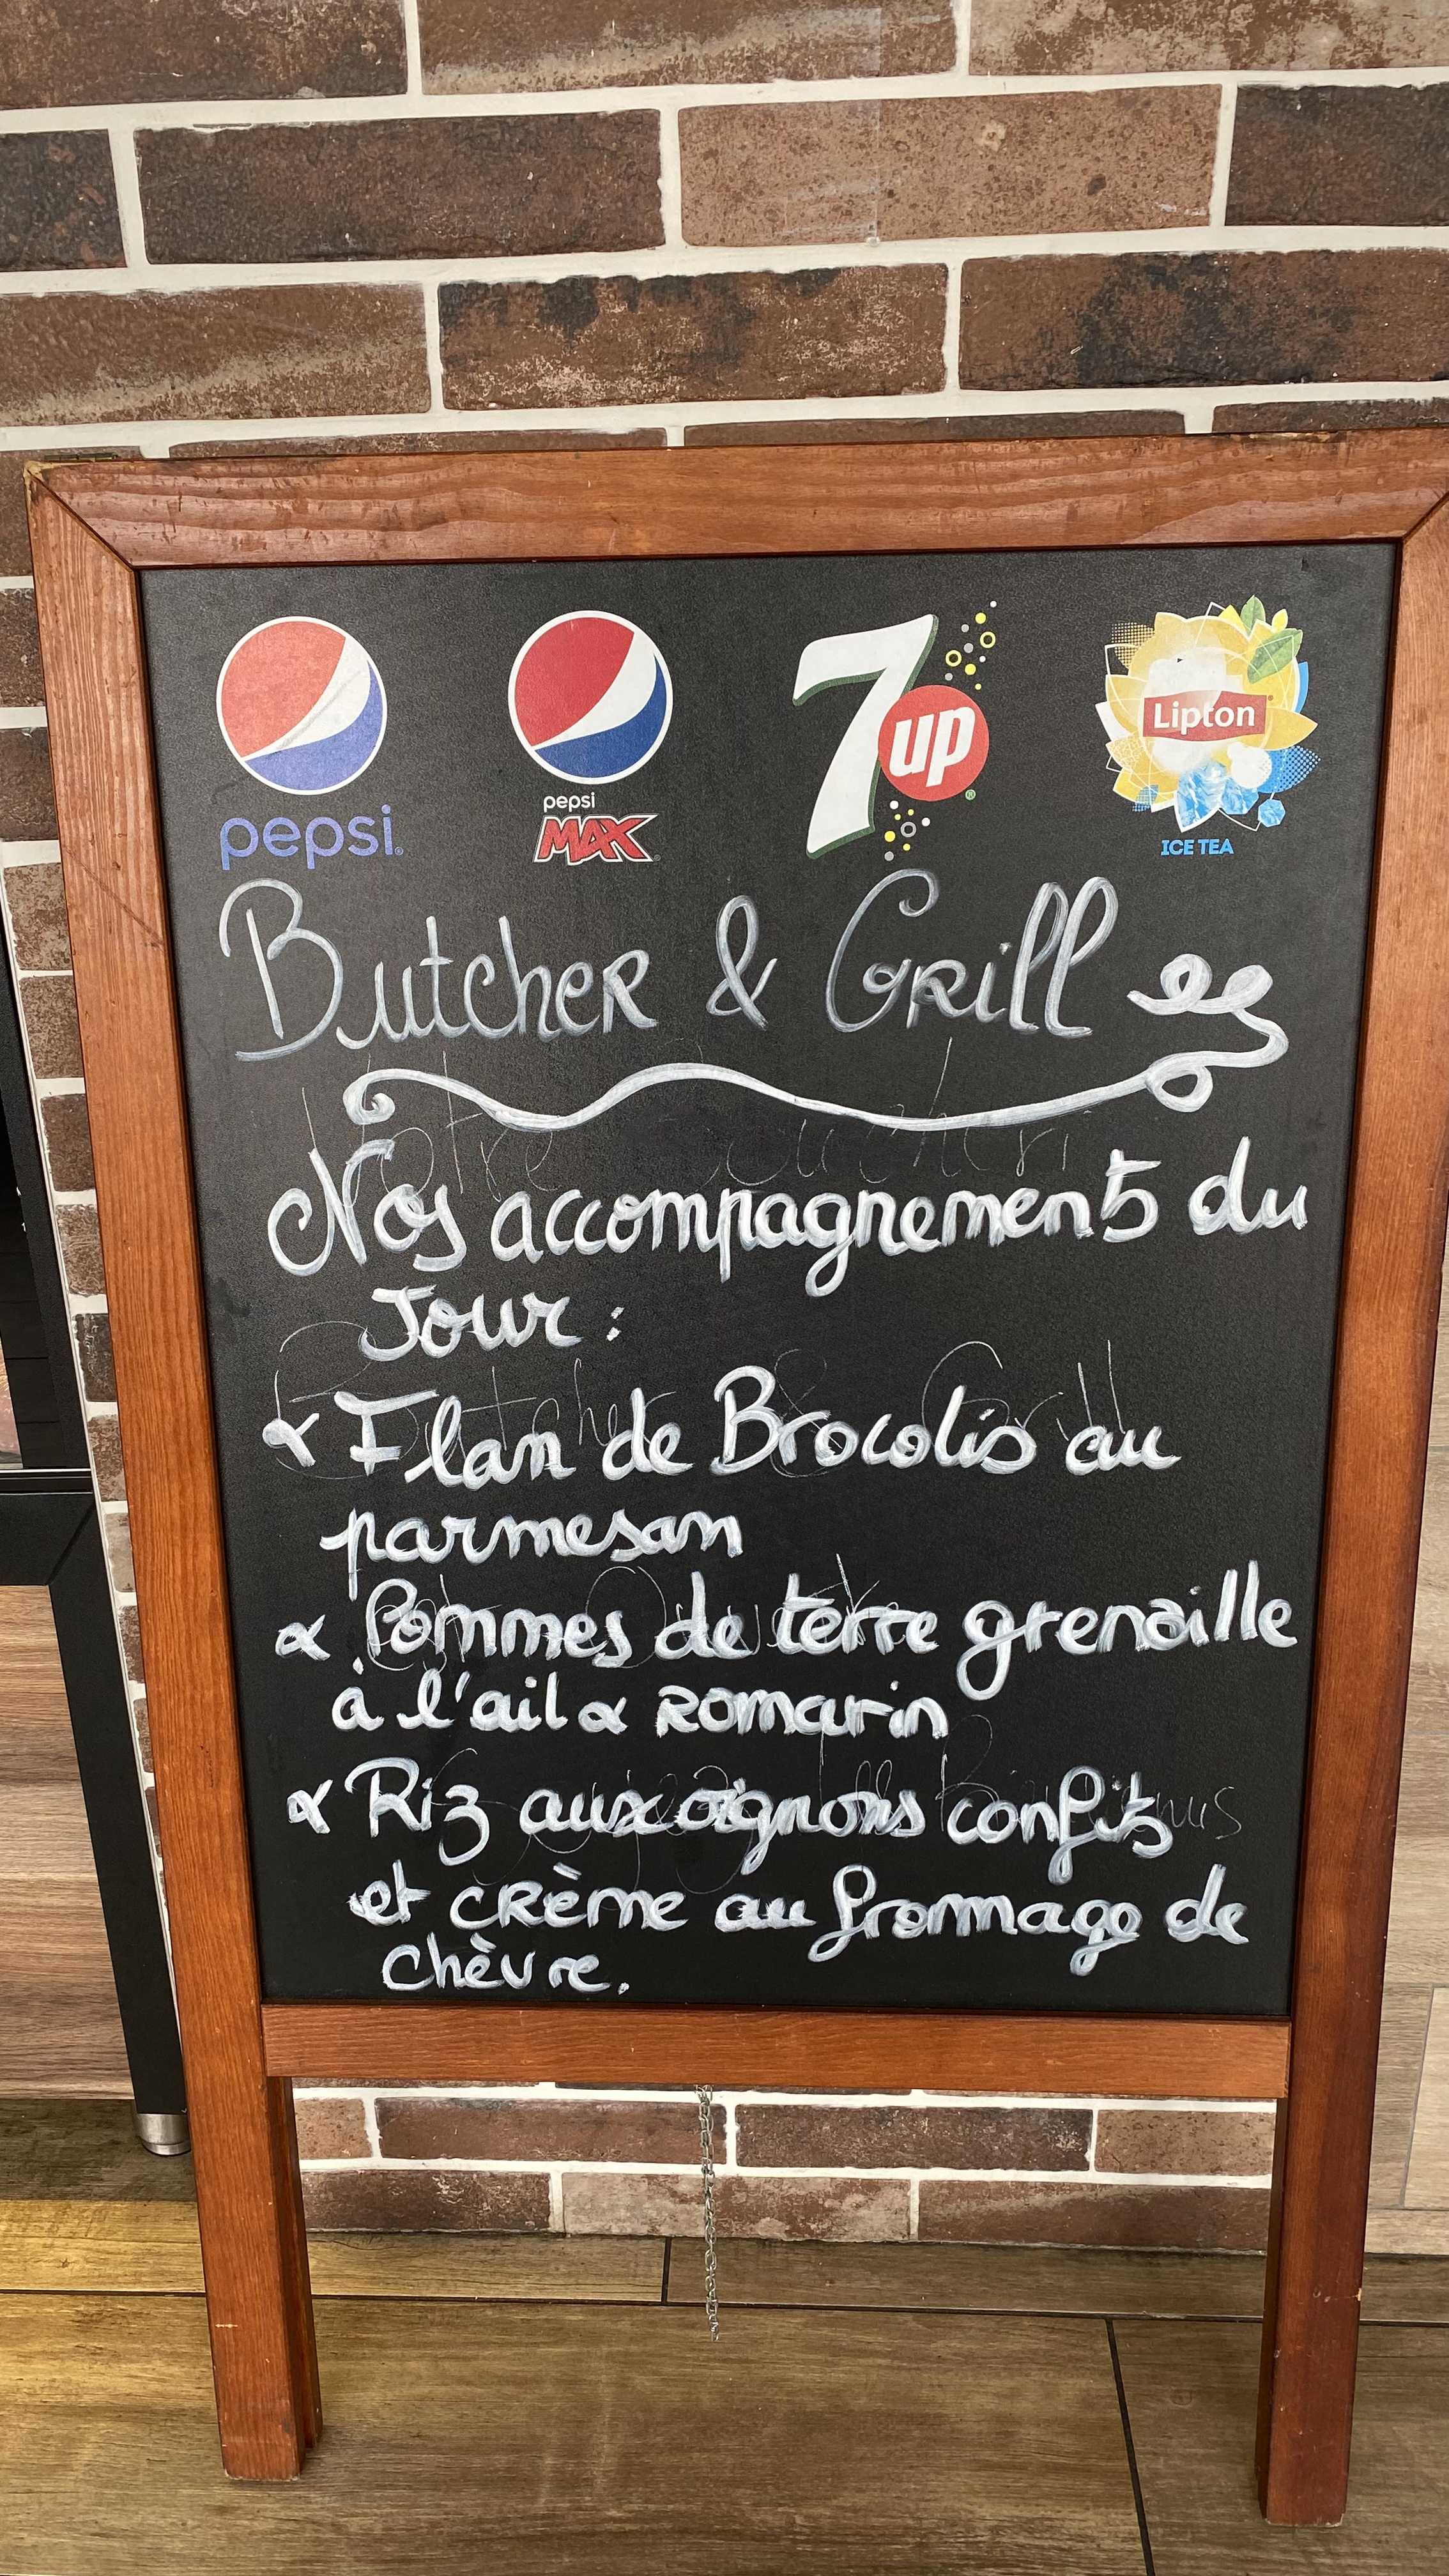 pepsi
pepsi
MAX
7up
Lipton
ICE TEA
Butcher & Grill
Nos accompagnements du
Jour :
Flan de Brocolis au
parmesan
Pommes de terre grenaille
à l'ail & Romarin
Riz aux oignons confits
et crème au frommage de
chèvre.